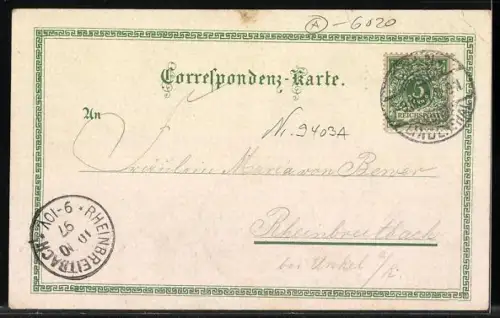 A - 6020
Correspondenz-Karte.
An
5
REICHSPOST
Nr. 9403A
Fräulein Maria von Bower
Rheinbreitbach
bei Unkel a/R.
RHEINBREITBACH * 9-10V *
10 10
97